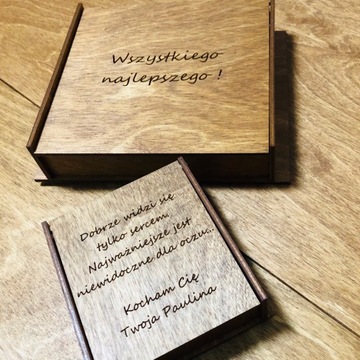 Wszystkiego
najlepszego !
Dobrze widzi się
tylko sercem.
Najważniejsze jest
niewidoczne dla oczu...
Kocham Cię
Twoja Paulina